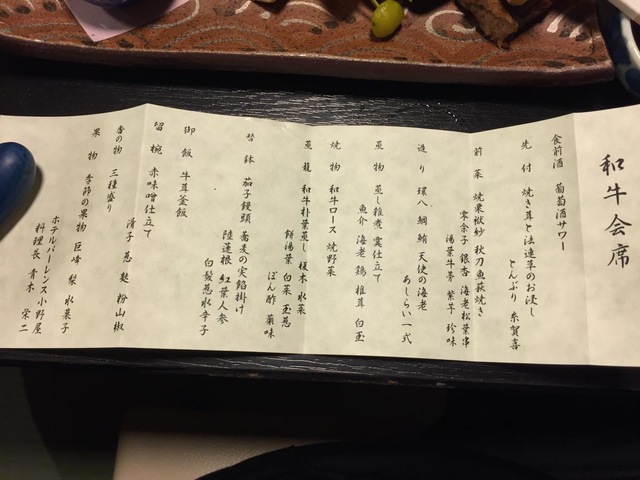 和牛会席
食前酒 葡萄酒サワー
先付 焼き茸と法連草のお浸し
とんぶり 糸賀喜
前菜 焼栗袱紗 秋刀魚萩焼き
零余子 銀杏 海老松葉串
湯葉牛蒡 紫芋 珍味
造り 環八 鯛 鮪 天使の海老
あしらい一式
蒸物 蒸し雑煮 霙仕立て
魚介 海老 鶏 椎茸 白玉
焼物 和牛ロース 焼野菜
蒸籠 和牛朴葉蒸し 榎木 水菜
餅湯葉 白菜 玉葱
ぽん酢 薬味
替鉢 茄子饅頭 蕎麦の実餡掛け
陸蓮根 紅葉人参
白髪葱水辛子
御飯 牛茸釜飯
留椀 赤味噌仕立て
滑子 葱 麩 粉山椒
香の物 三種盛り
果物 季節の果物 巨峰 梨 水菓子
ホテルパーレンス小野屋
料理長 青木 栄二